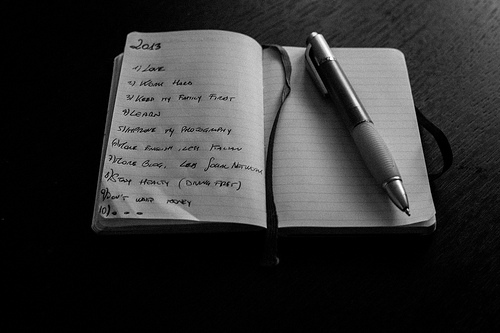 2013
1) LOVE
2) WORK HARD
3) KEEP MY FAMILY FIRST
4) LEARN
5) IMPROVE MY PHOTOGRAPHY
6) MORE ENGLISH, LESS ITALIAN
7) MORE BLOG, LESS SOCIAL NETWORK
8) STAY HEALTY (DIVING FIRST)
9) DON'T WAST MONEY
10) - - -